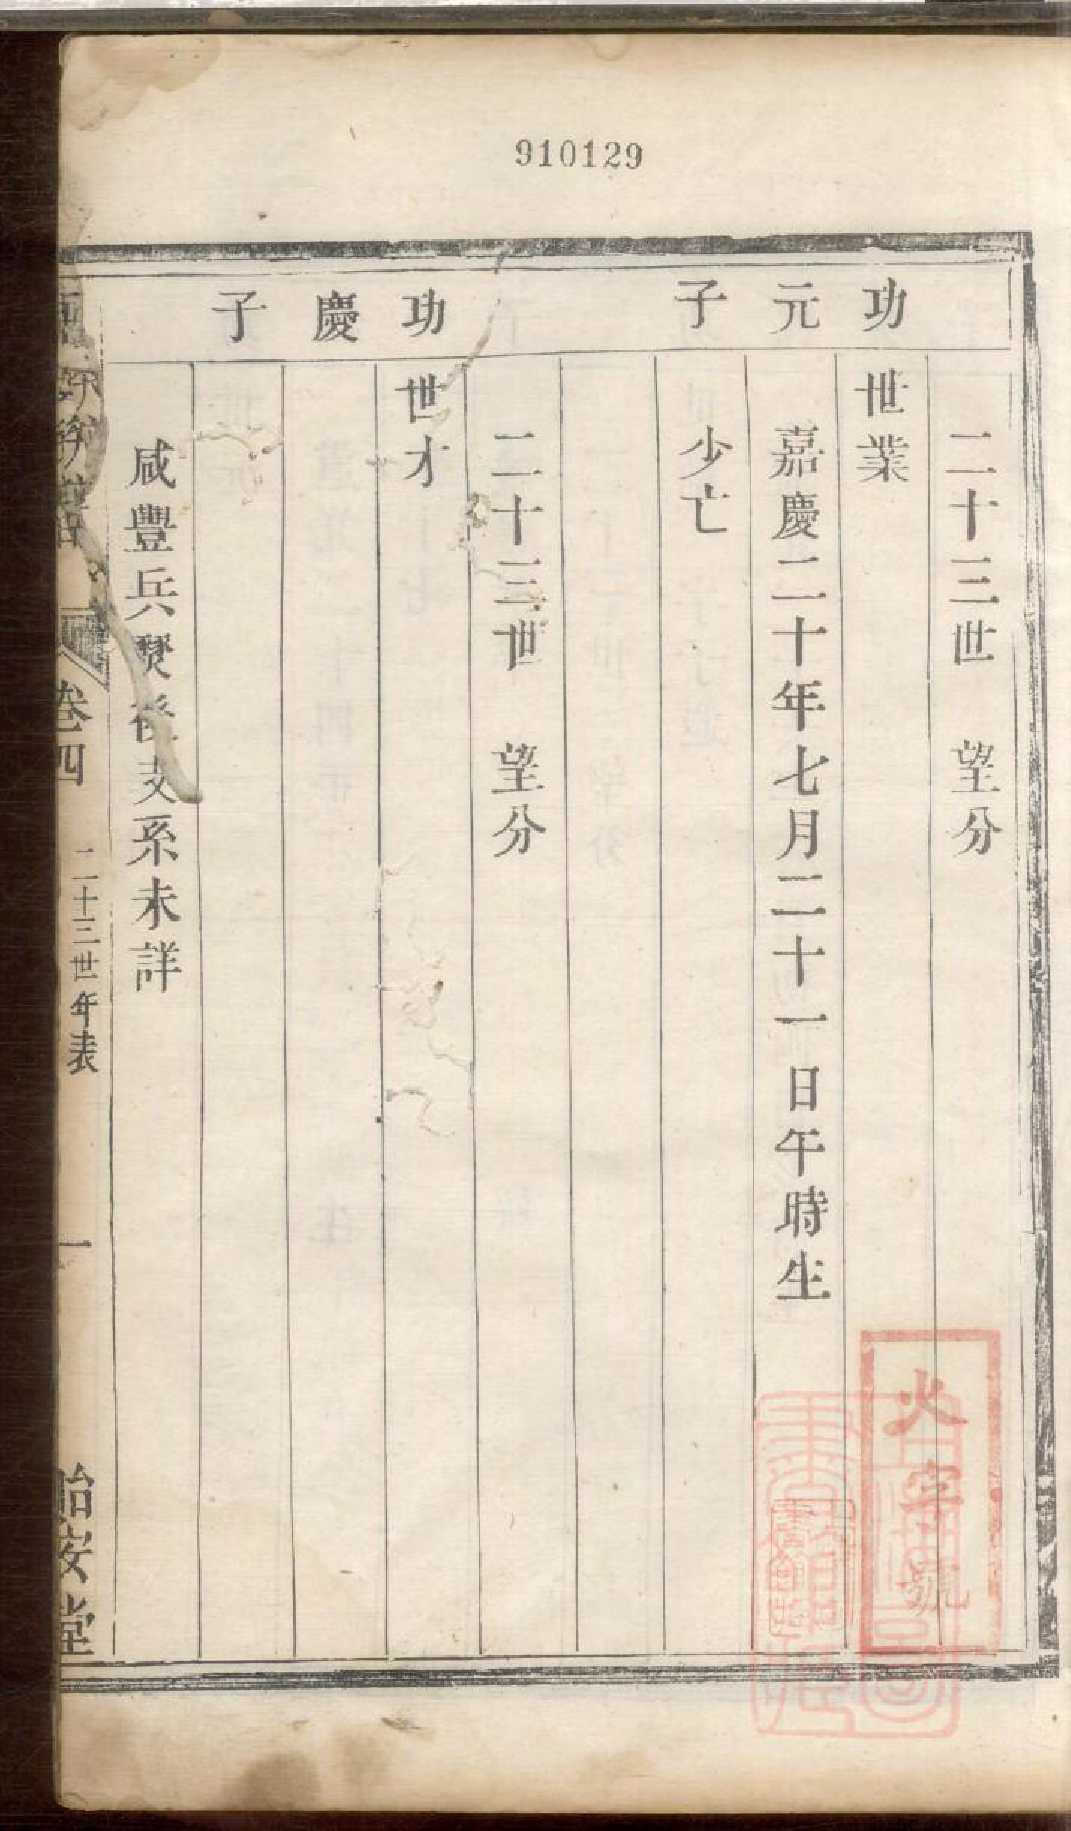 910129
功元子
二十三世 望分
世業
嘉慶二十年七月二十一日午時生
少亡
功慶子
二十三世 望分
世才
咸豐兵燹後支系未詳
卷四
二十三世年表
一
怡安堂
火字號